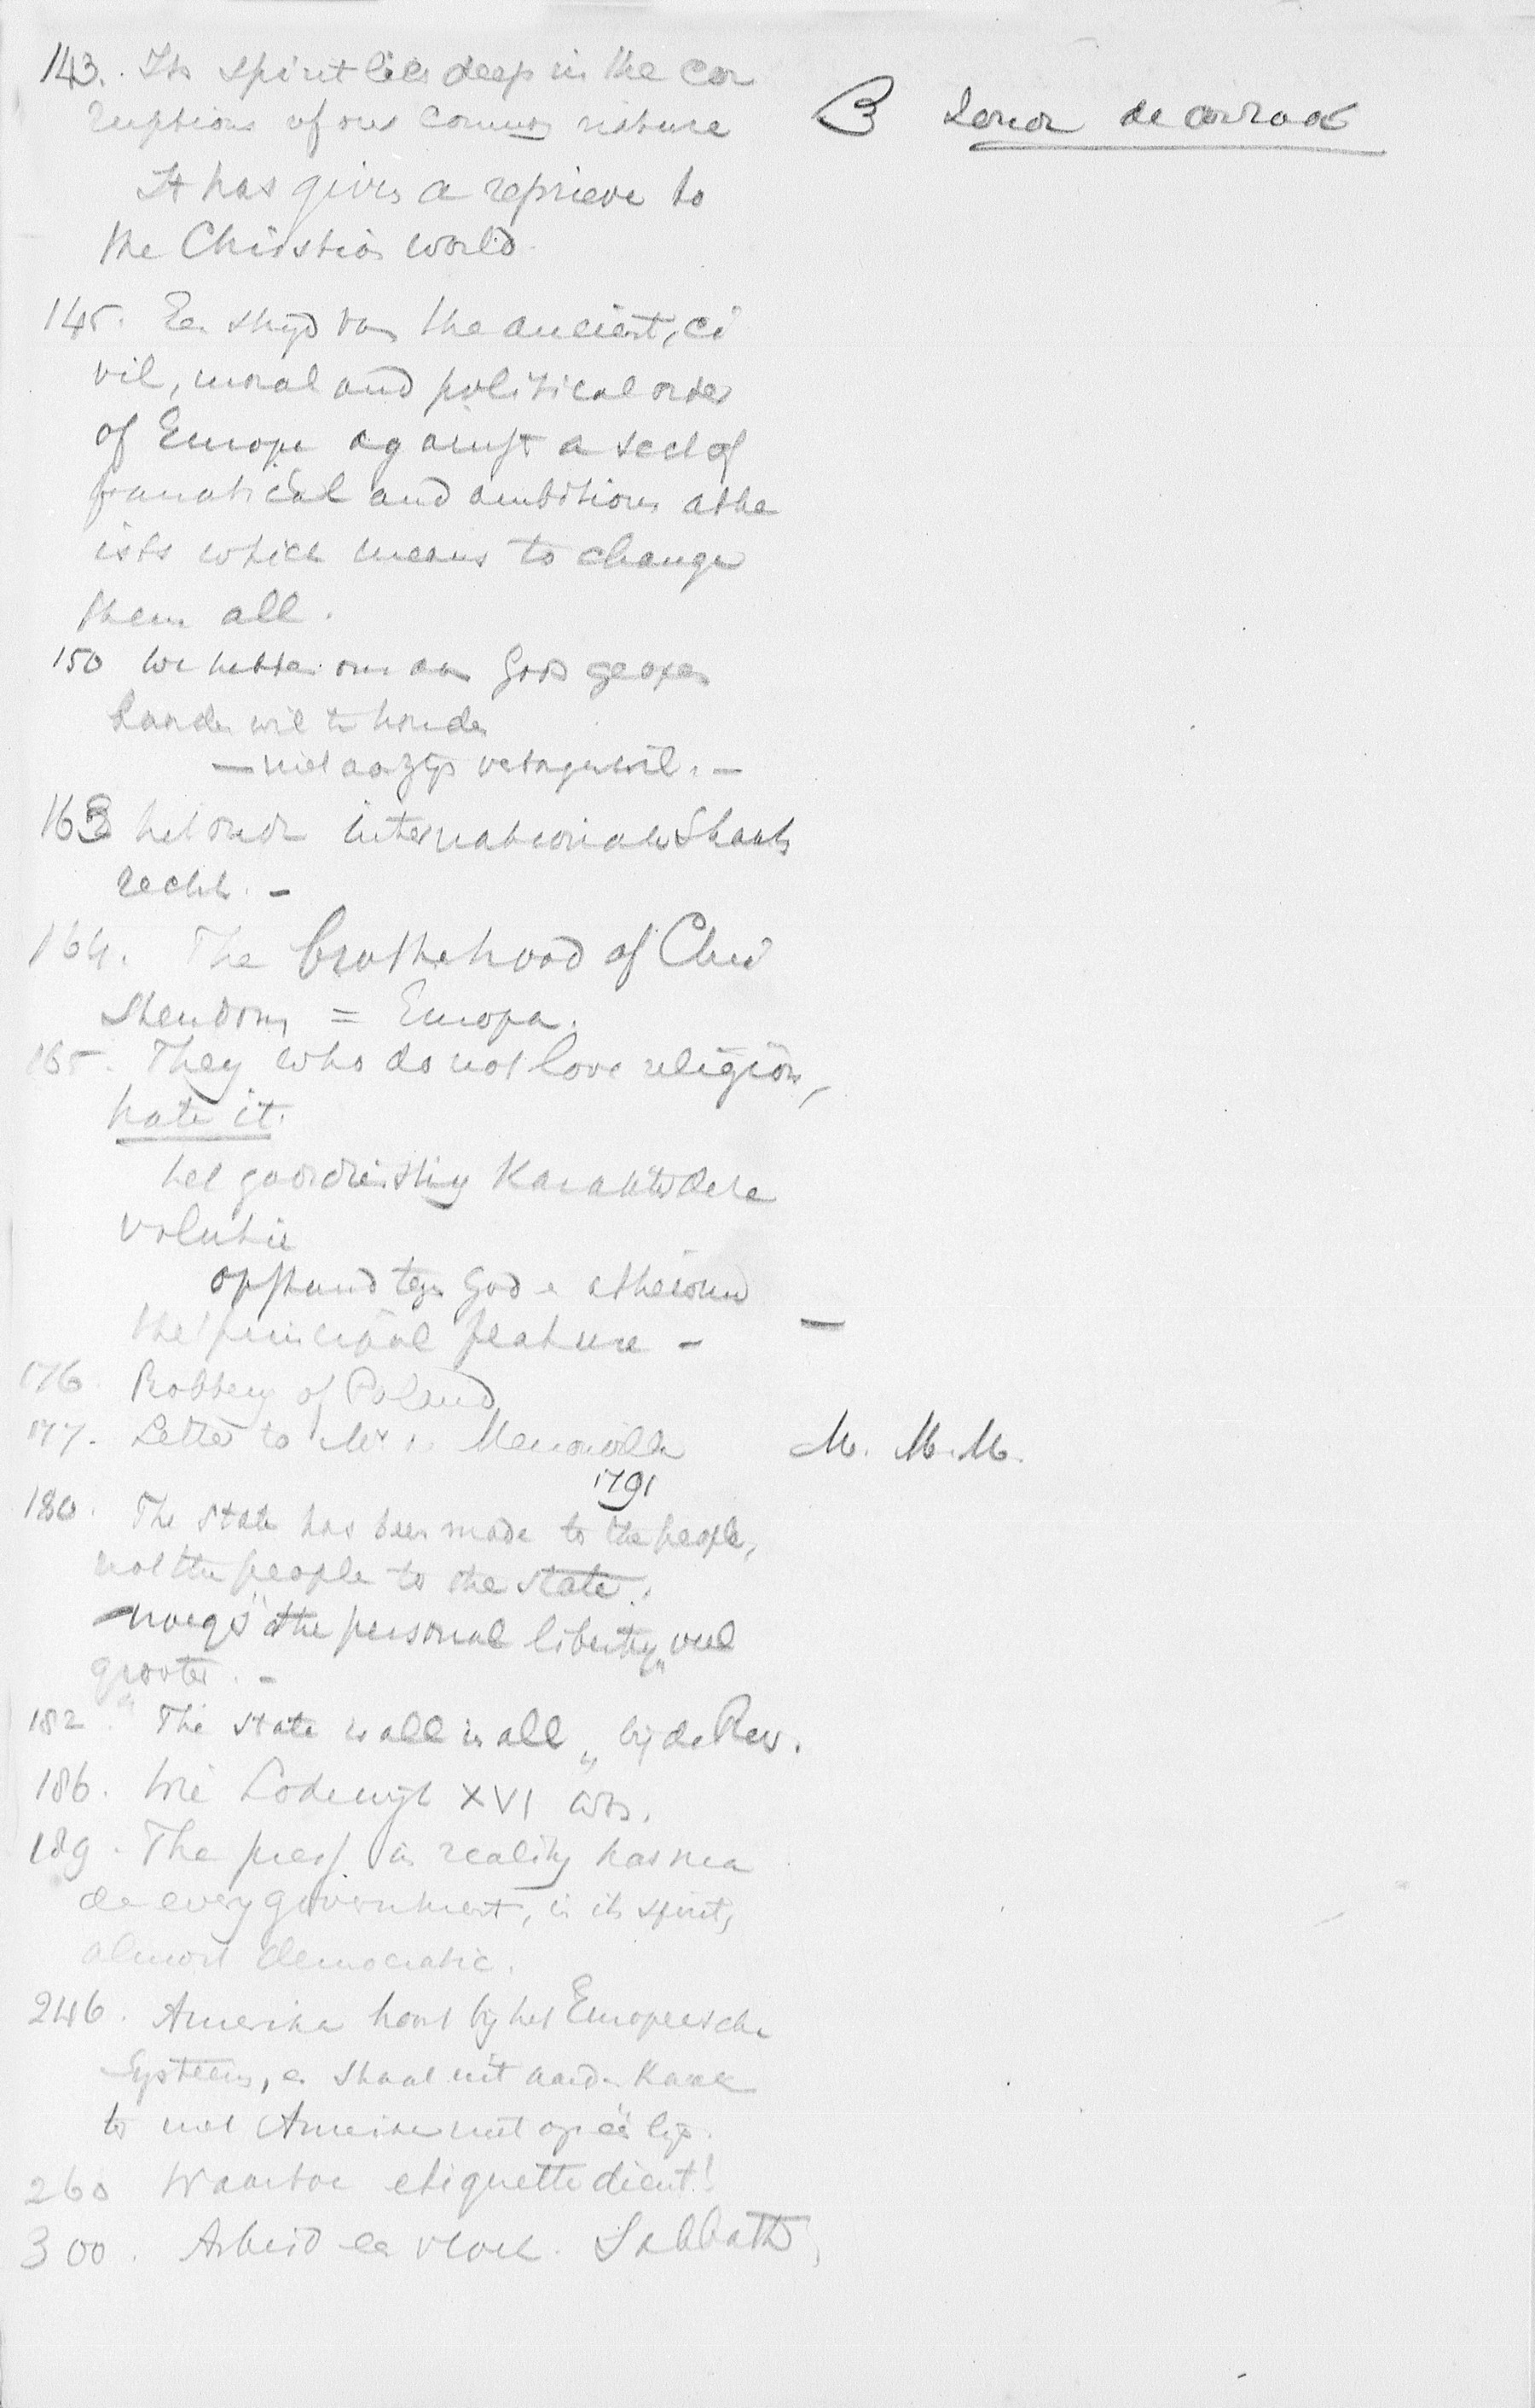 143. Its spirit lies deep in the cor
ruptions of our common nature
It has given a reprieve to
the Christian world.
145. Een strijd van the ancient, ci
vil, moral and political order
of Europe against a sect of
fanatical and ambitious athe
ists which means to change
them all.
150 We hebben ons aan Gods
wil te houden
163 het oude internationale Staats
recht. -
164. The brotherhood of Chri
stendom = Europa.
165. They who do not love religion,
hate it.
het godsdienstig Karakter der re
volutie
opstand tegen God en atheism
the principal feature -
176. Robbery of Poland
177. Letter to Mr.
1791
180. The state has been made to the people,
not the people to the state.
"the personal liberty" veel
grooter. -
182. "The state is all in all" bij de Rev.
186. Wie Lodewijk XVI was.
189. The press in reality has ma
de every government, in its spirit,
almost democratic.
246. Amerika hoort bij het Europeesche
Systeem,
te met Amerika niet op één lijn.
260 Waartoe etiquette dient!
300. Arbeid een vloek. Sabbath,
B
M. M. M.